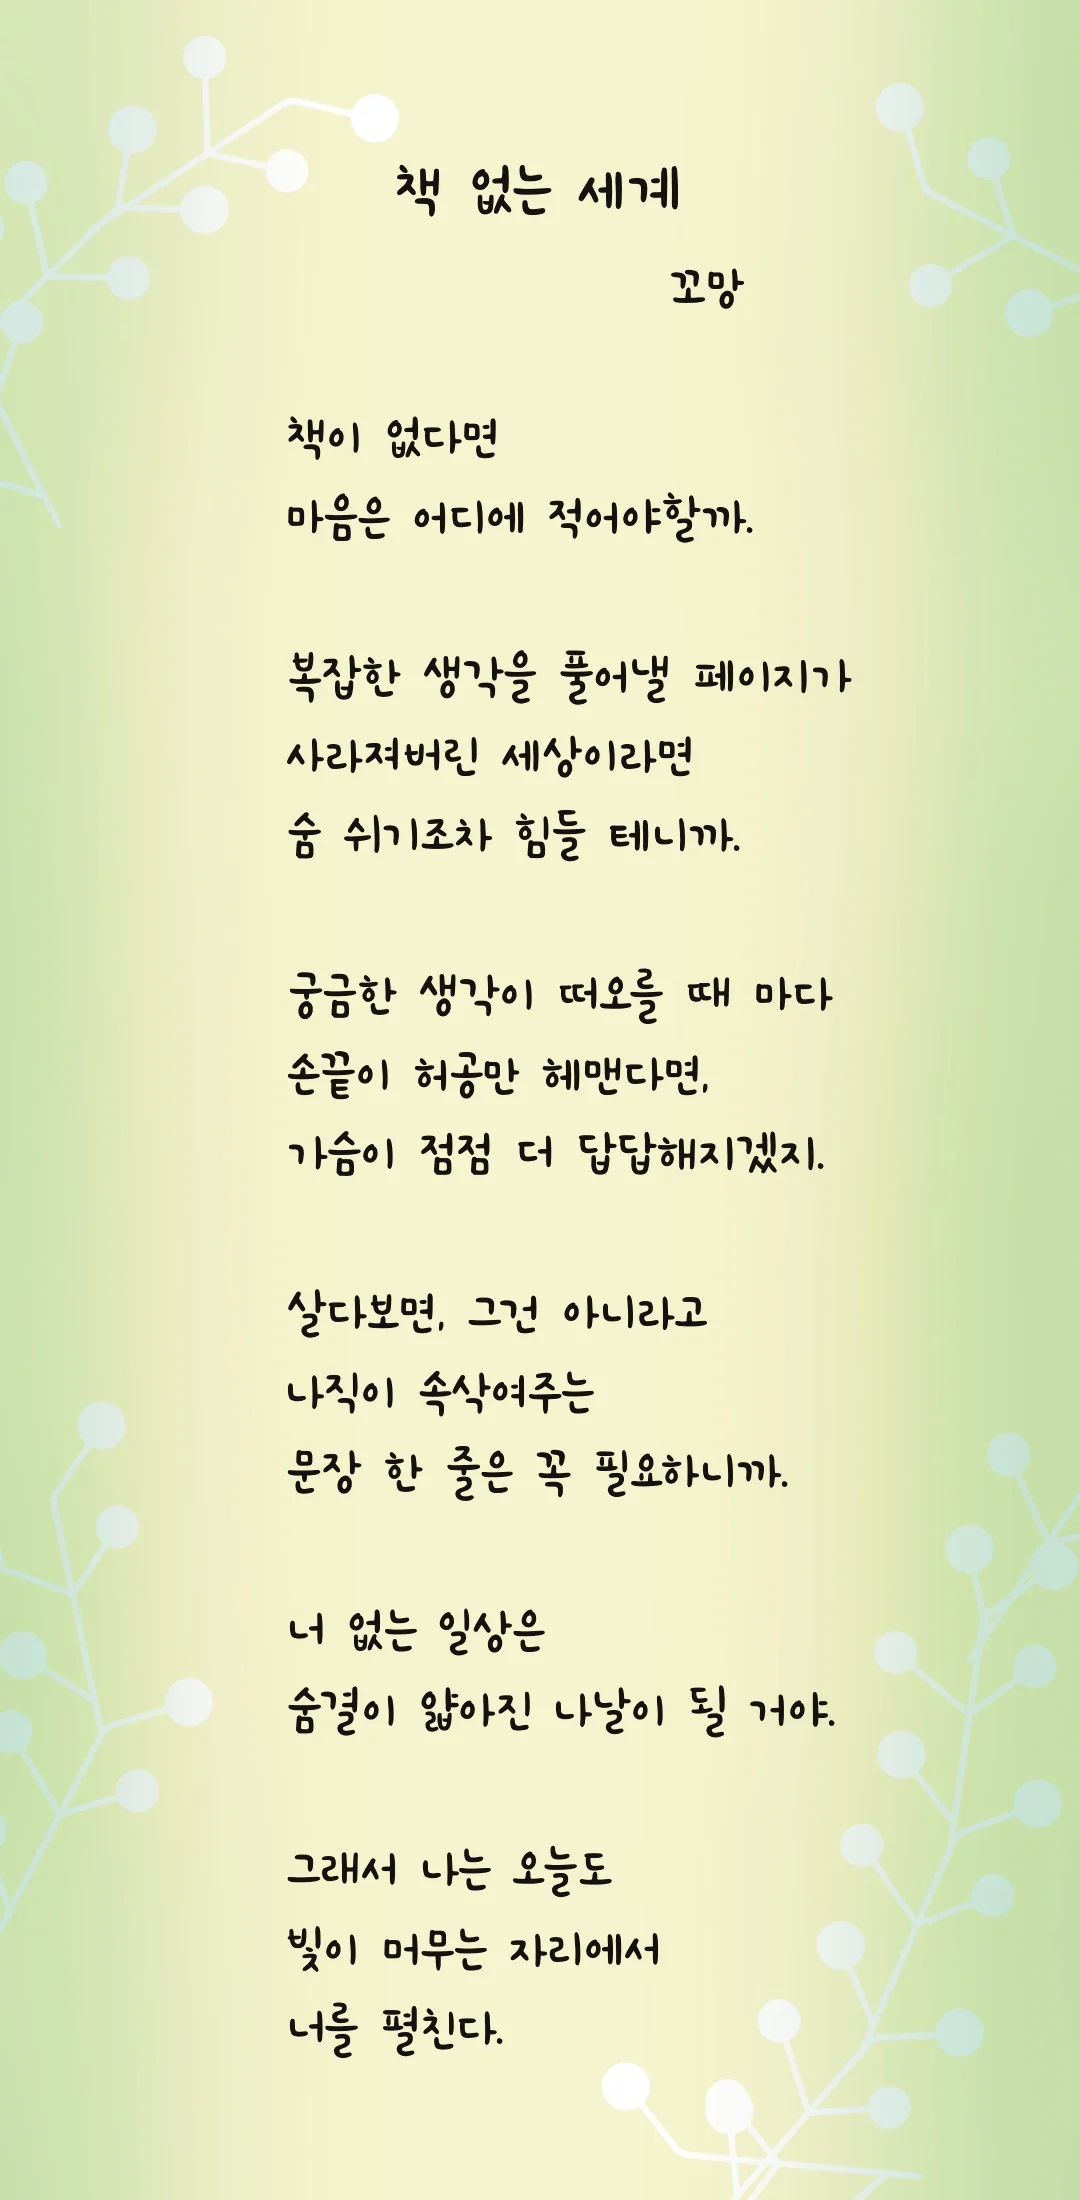 책 없는 세계
꼬망
책이 없다면
마음은 어디에 적어야할까.
복잡한 생각을 풀어낼 페이지가
사라져버린 세상이라면
숨 쉬기조차 힘들 테니까.
궁금한 생각이 떠오를 때 마다
손끝이 허공만 헤맨다면,
가슴이 점점 더 답답해지겠지.
살다보면, 그건 아니라고
나직이 속삭여주는
문장 한 줄은 꼭 필요하니까.
너 없는 일상은
숨결이 얇아진 나날이 될 거야.
그래서 나는 오늘도
빛이 머무는 자리에서
너를 펼친다.